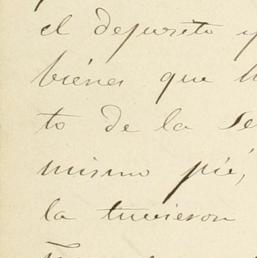 el depureto y
bienes que h
to de la Se
mismo pié,
la tuvieron